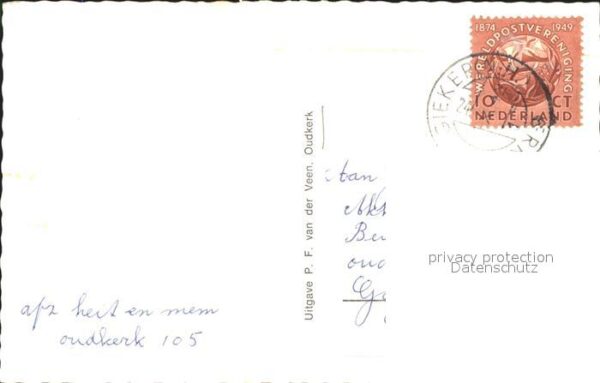 1874 1949
WERELDPOSTVERENIGING
10 CT
NEDERLAND
Uitgave P. F. van der Veen, Oudkerk
Aan
privacy protection
Datenschutz
afz heit en mem
oudkerk 105